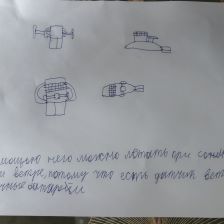 мощью него можно летать при сол
и ветре, потому что есть датчик вет
ные батарейки